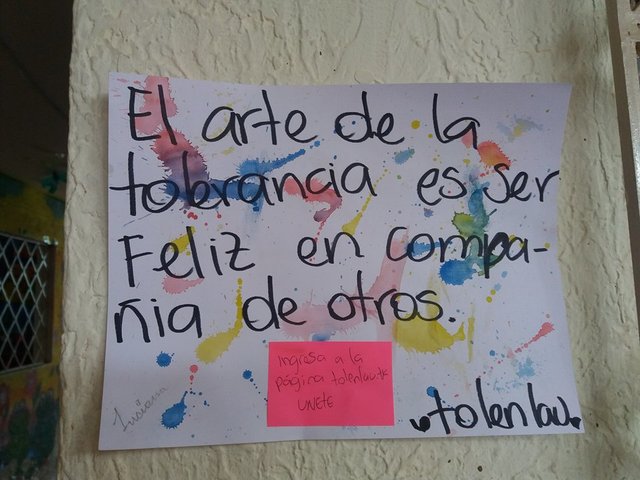 El arte de la
tolerancia es ser
Feliz en compa-
ñia de otros.
Ingresa a la
página tolenlau.tk
UNETE
tolenlau